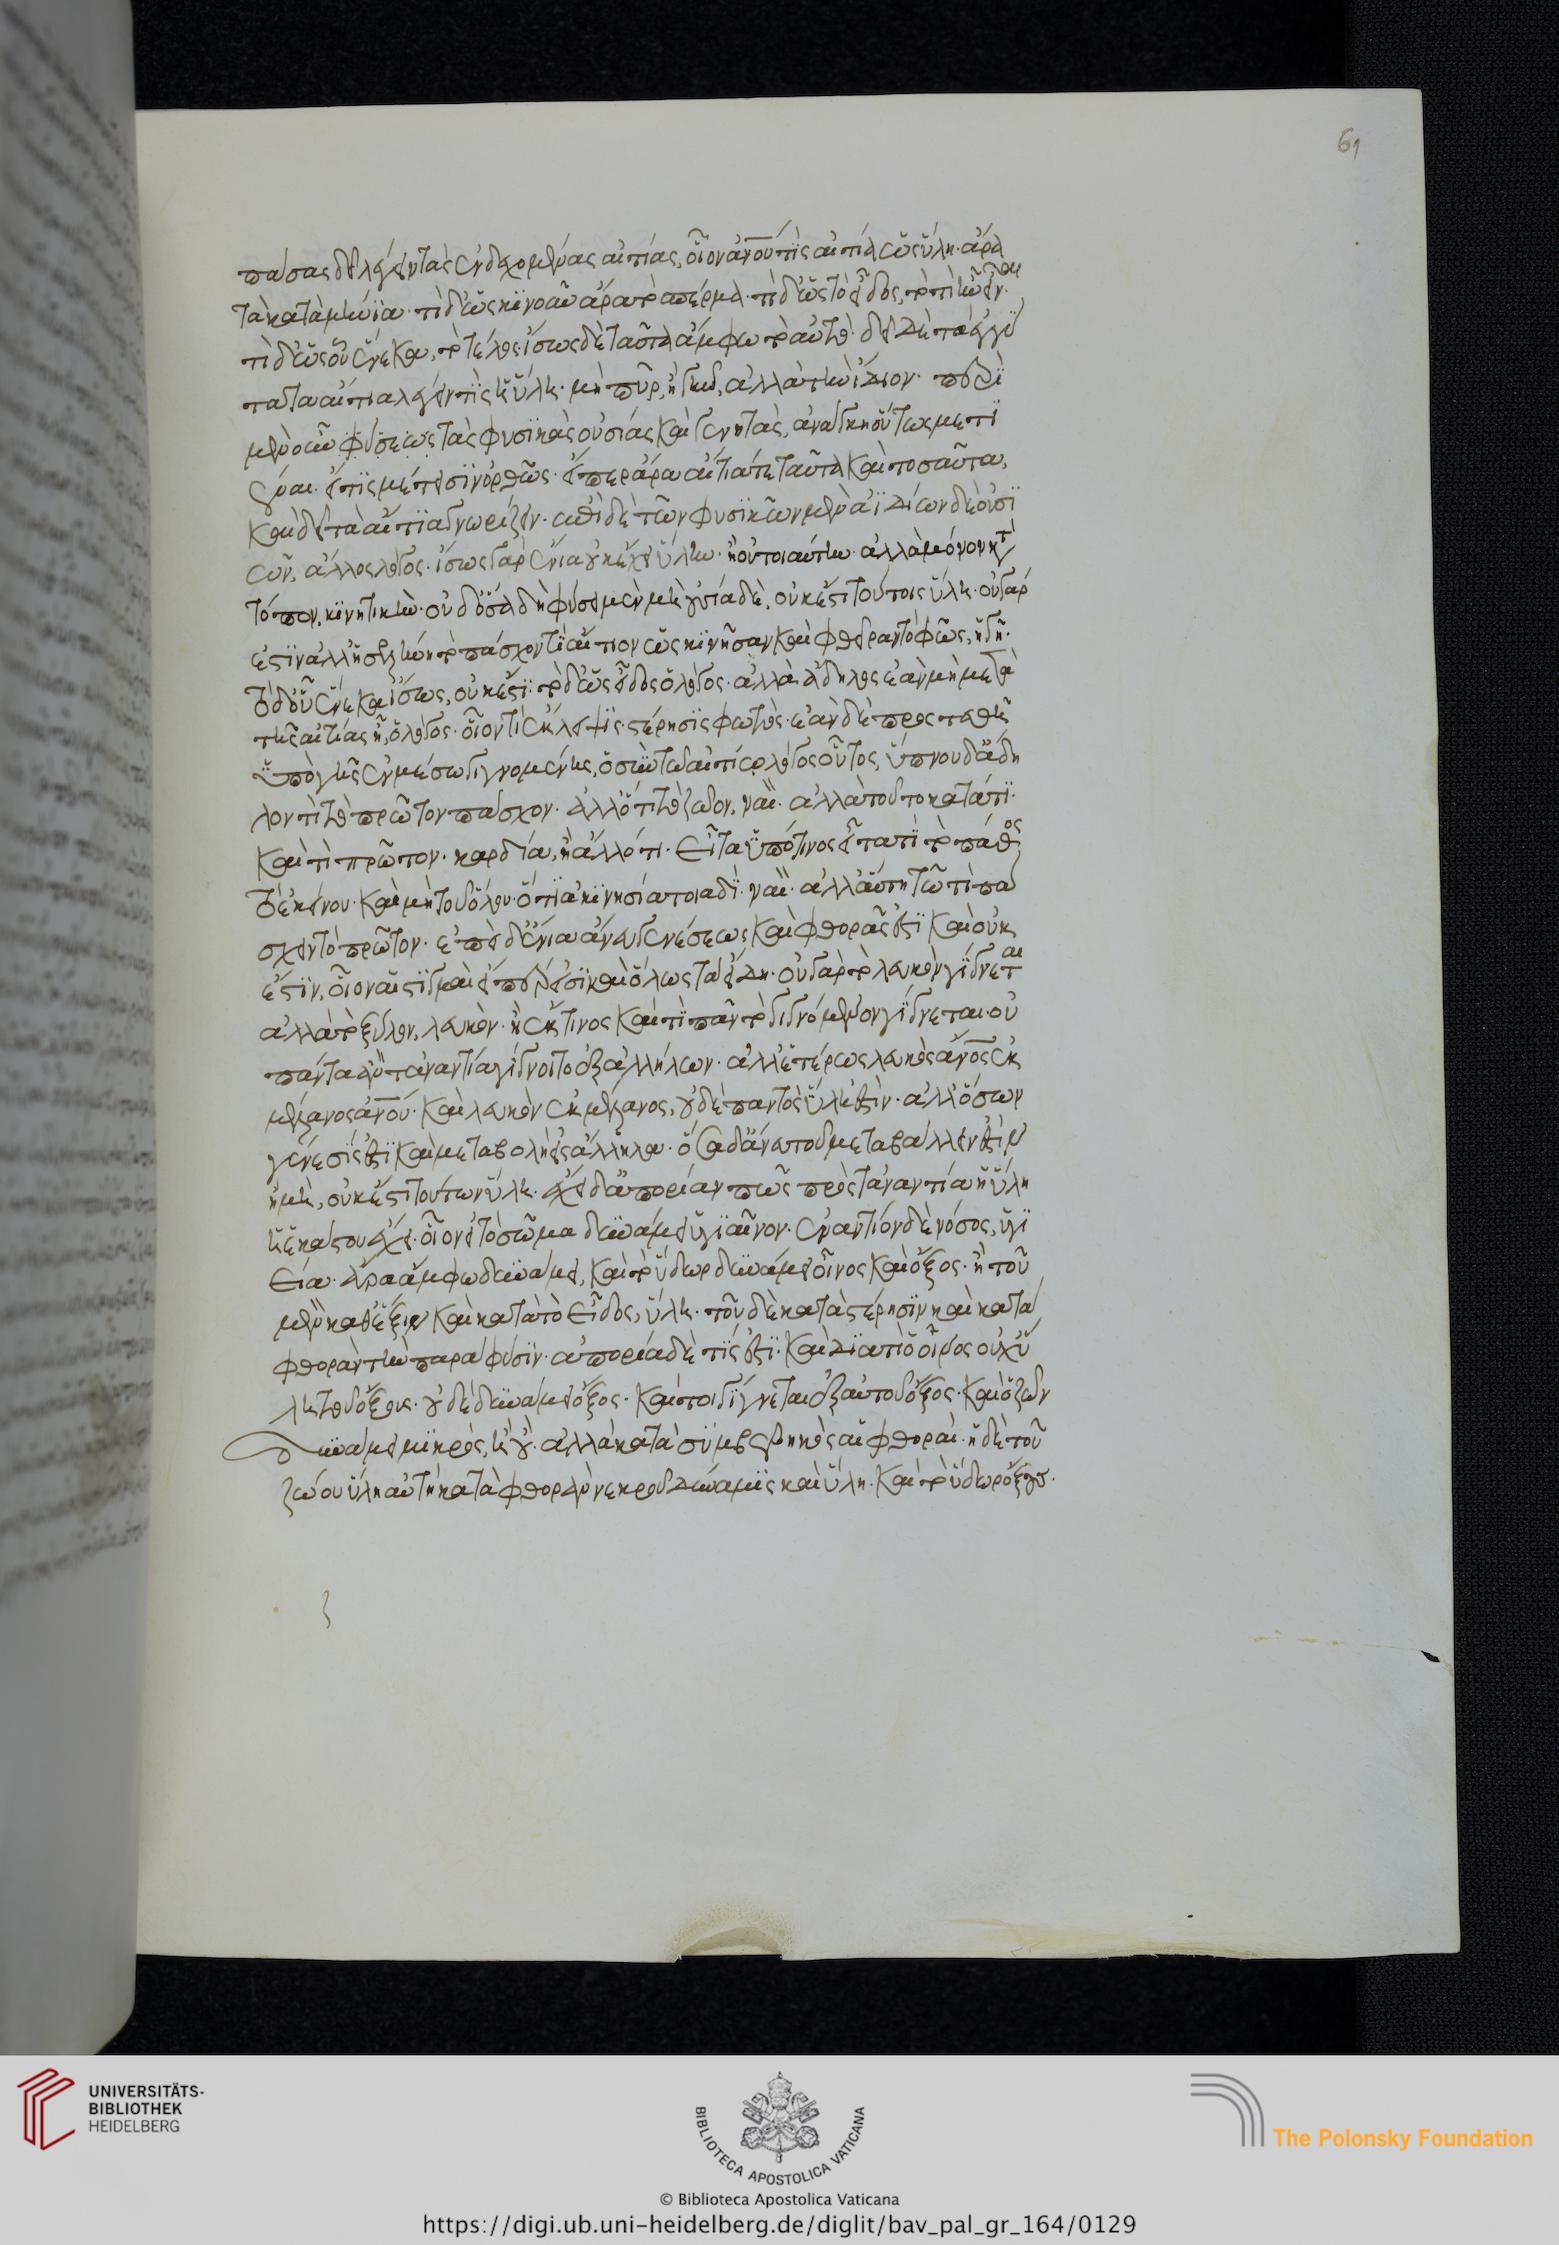 πάσας δεῖ λέγειν τὰς ἐνδεχομένας αἰτίας, οἷον ἀν̅ο̅υ τίς αἰτία ὡς ὕλη· ἆρα
τὰ καταμήνια· τί δ' ὡς κινοῦν ἆρα τὸ σπέρμα· τί δ' ὡς τὸ εἶδος, τὸ τί ἦν εἶναι·
τί δ' ὡς οὗ ἕνεκα, τὸ τέλος· ἴσως δὲ ταῦτα ἄμφω τὸ αὐτό· δεῖ δὲ τὰ ἐγγύ
τατα αἴτια λέγειν τίς ἡ ὕλη· μὴ πῦρ, ἢ γῆν, ἀλλὰ τὴν ἴδιον· περὶ
μὲν οὖν φύσεως τὰς φυσικὰς οὐσίας καὶ γενητὰς, ἀνάγκη οὕτως μετι
έναι· εἴ τις μέτεισιν ὀρθῶς· εἴπερ ἄρα αἴτιά τε ταῦτα καὶ τοσαῦτα,
καὶ δεῖ τὰ αἴτια γνωρίζειν· ἐπὶ δὲ τῶν φυσικῶν μὲν ἀϊδίων δὲ οὐσι
ῶν, ἄλλος λόγος· ἴσως γὰρ ἔνια οὐκ ἔχει ὕλην· ἢ οὐ τοιαύτην· ἀλλὰ μόνον κατὰ
τόπον, κινητικήν· οὐδ' ὅσα δὴ φύσει μὲν μὴ οὐσία δὲ, οὐκ ἔστι τούτοις ὕλη· οὐ γάρ
ἐστιν ἀλλ' ἡ σελήνη τὸ πάσχον τί αἴτιον ὡς κινῆσαν καὶ φθεῖραν τὸ φῶς, ἡ γῆ·
τὸ δ' οὗ ἕνεκα ἴσως, οὐκ ἔστι· τὸ δ' ὡς εἶδος ὁ λόγος· ἀλλὰ ἄδηλος ἐὰν μὴ μετὰ
τῆς αἰτίας ᾖ, ὁ λόγος· οἷον τί ἔκλειψις· στέρησις φωτός· ἐὰν δὲ προς τεθῆ
ὑπὸ γῆς ἐν μέσω γιγνομένης, ὁ σὺν τῶ αἰτίω λόγος οὗτος, ὕπνου δ' ἄδη
λον τί τὸ πρῶτον πάσχον· ἀλλ' ὅτι τὸ ζῶον, ναί· ἀλλὰ τοῦτο κατὰ τί·
καὶ τί πρῶτον· καρδία, ἢ ἄλλό τι· εἶτα ὑπό τινος εἶτα τί τὸ πάθος
τὸ ἐκείνου· καὶ μὴ τοῦ ὅλου· ὅτι ἀκινησία τοιαδί· ναί· ἀλλ' αὕτη τῶ τί πά
σχειν τὸ πρῶτον· ἐπεὶ δ' ἔνια ἄνευ γενέσεως καὶ φθορᾶς ἐστι καὶ οὐκ
ἔστιν, οἷον αἱ στιγμαὶ εἴπερ εἰσὶν καὶ ὅλως τὰ εἴδη· οὐ γὰρ τὸ λευκὸν γίγνεται
ἀλλὰ τὸ ξύλον, λευκόν· ἢ ἔκ τινος καὶ τὶ πᾶν τὸ γιγνόμενον γίγνεται· οὐ
πάντα ἂν τἀναντία γίγνοιτο ἐξ ἀλλήλων· ἀλλ' ἑτέρως λευκὸς ἄν̅ο̅ς ἐκ
μέλανος ἀν̅ο̅υ· καὶ λευκὸν ἐκ μέλανος, οὐδὲ παντὸς ὕλη ἐστίν· ἀλλ' ὅσων
γένεσίς ἐστι καὶ μεταβολὴ εἰς ἄλληλα· ὅσα δ' ἄνευ τοῦ μεταβάλλειν ἐστὶν
ἢ μὴ, οὐκ ἔστι τούτων ὕλη· ἔχει δ' ἀπορίαν πῶς πρὸς τἀναντία ἡ ὕλη
ἡ ἑκάστου ἔχει· οἷον εἰ τὸ σῶμα δυνάμει ὑγιεῖνον· ἐναντίον δὲ νόσος, ὑγι
εία· ἆρα ἄμφω δυνάμει, καὶ τὸ ὕδωρ δυνάμει οἶνος καὶ ὄξος· ἢ τοῦ
μὲν καθ' ἕξιν καὶ κατὰ τὸ εἶδος, ὕλη· τοῦ δὲ κατὰ στέρησιν καὶ κατὰ
φθορὰν τὴν παρὰ φύσιν· ἀπορία δὲ τίς ἐστι· καὶ διατί ὁ οἶνος οὐχ ὕ
λη τοῦ ὄξους· οὐδὲ δυνάμει ὄξος· καίτοι γίγνεται ἐξ αὐτοῦ ὄξος· καὶ ὁ ζῶν
δυνάμει νεκρός, ἢ οὔ· ἀλλὰ κατὰ συμβεβηκὸς αἱ φθοραί· ἡ δὲ τοῦ
ζώου ὕλη αὐτὴ κατὰ φθορὰν νεκροῦ δύναμις καὶ ὕλη· καὶ τὸ ὕδωρ ὄξους·
61
UNIVERSITÄTS-
BIBLIOTHEK
HEIDELBERG
BIBLIOTECA APOSTOLICA VATICANA
The Polonsky Foundation
© Biblioteca Apostolica Vaticana
https://digi.ub.uni-heidelberg.de/diglit/bav_pal_gr_164/0129